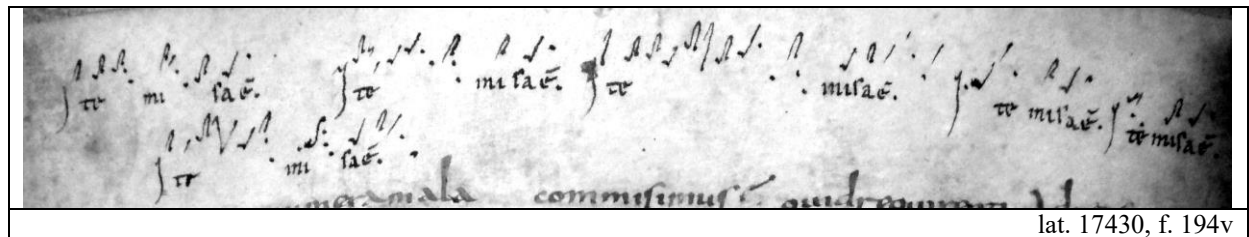 Ite mi ſaē. Ite mi ſaē. Ite miſaē. Ite miſaē. Ite miſaē.
Ite mi ſaē.
mala commiſimuſ
lat. 17430, f. 194v